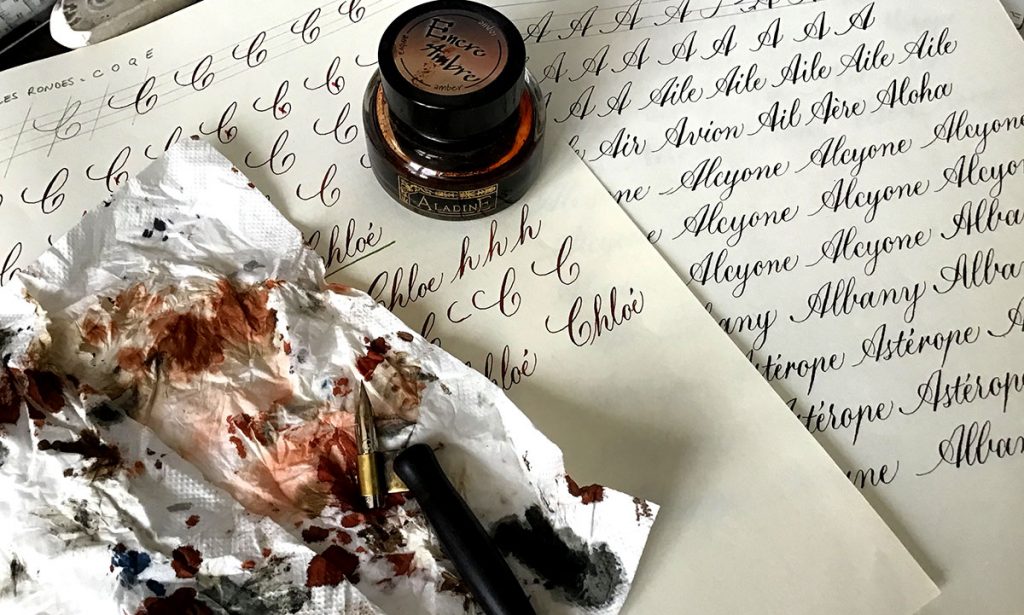 LES RONDES. COQE
C C C C C
C C C C C
C C C C
Chloé
Chloe h h h
C C C
Chloé
Chloé
Encre
Ambre
amber
ALADINE
A A A A A
A A A A A A A A
A A A Aile Aile Aile Aile Aile
Air Avion Ail Aère Aloha
Alcyone Alcyone Alcyone
Alcyone Alcyone Alcyo
Alcyone Alcyone Alba
any Albany Albany Alba
Astérope Astérope A
térope Astérope Astérop
ne Alban